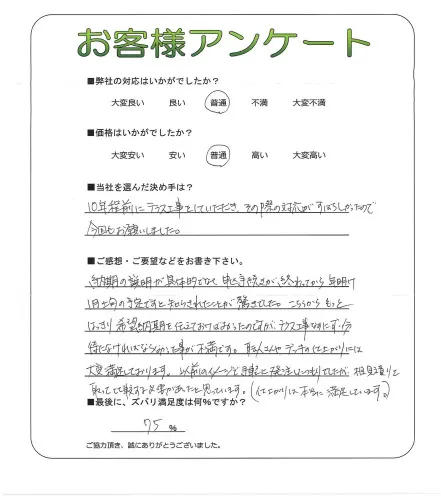 お客様アンケート
■弊社の対応はいかがでしたか?
大変良い 良い 普通 不満 大変不満
■価格はいかがでしたか?
大変安い 安い 普通 高い 大変高い
■当社を選んだ決め手は?
10年程前にテラス工事をしていただき、その際の対応がすばらしかったので
今回もお願いしました。
■ご感想・ご要望などをお書き下さい。
納期の説明が具体的でなく申込手続きが、終わってから年明け
1月上旬の予定ですと知らされたことが驚きでした。こちらからもっと
はっきり希望納期を伝えておけばよかったのですが、テラス工事なのに
待たなければならなかった事が不満です。職人さんやデッキの仕上がりには
大変満足しております。以前のイメージで手軽に発注したつもりでしたが、相見積りを
取って比較する必要があったと思っています。(仕上がりは本当に満足しています。)
■最後に、ズバリ満足度は何%ですか?
75 %
ご協力頂き、誠にありがとうございました。